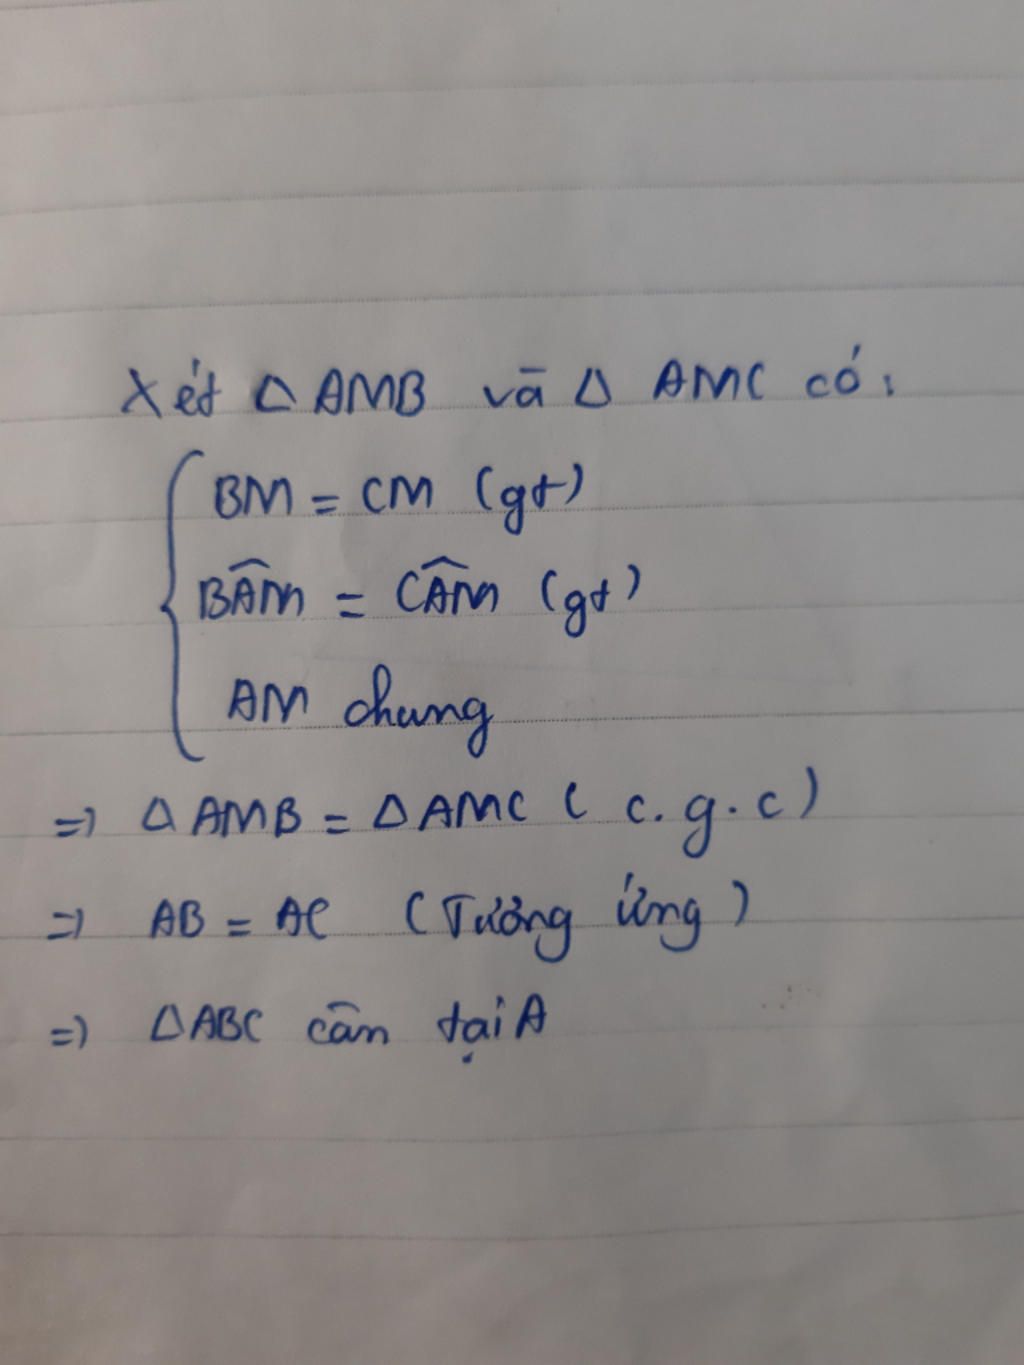 Xét △ AMB và △ AMC có:
BM = CM (gt)
BÂM = CÂM (gt)
AM chung
=> △ AMB = △ AMC ( c.g.c )
=> AB = AC (Tương ứng )
=> △ABC cân tại A